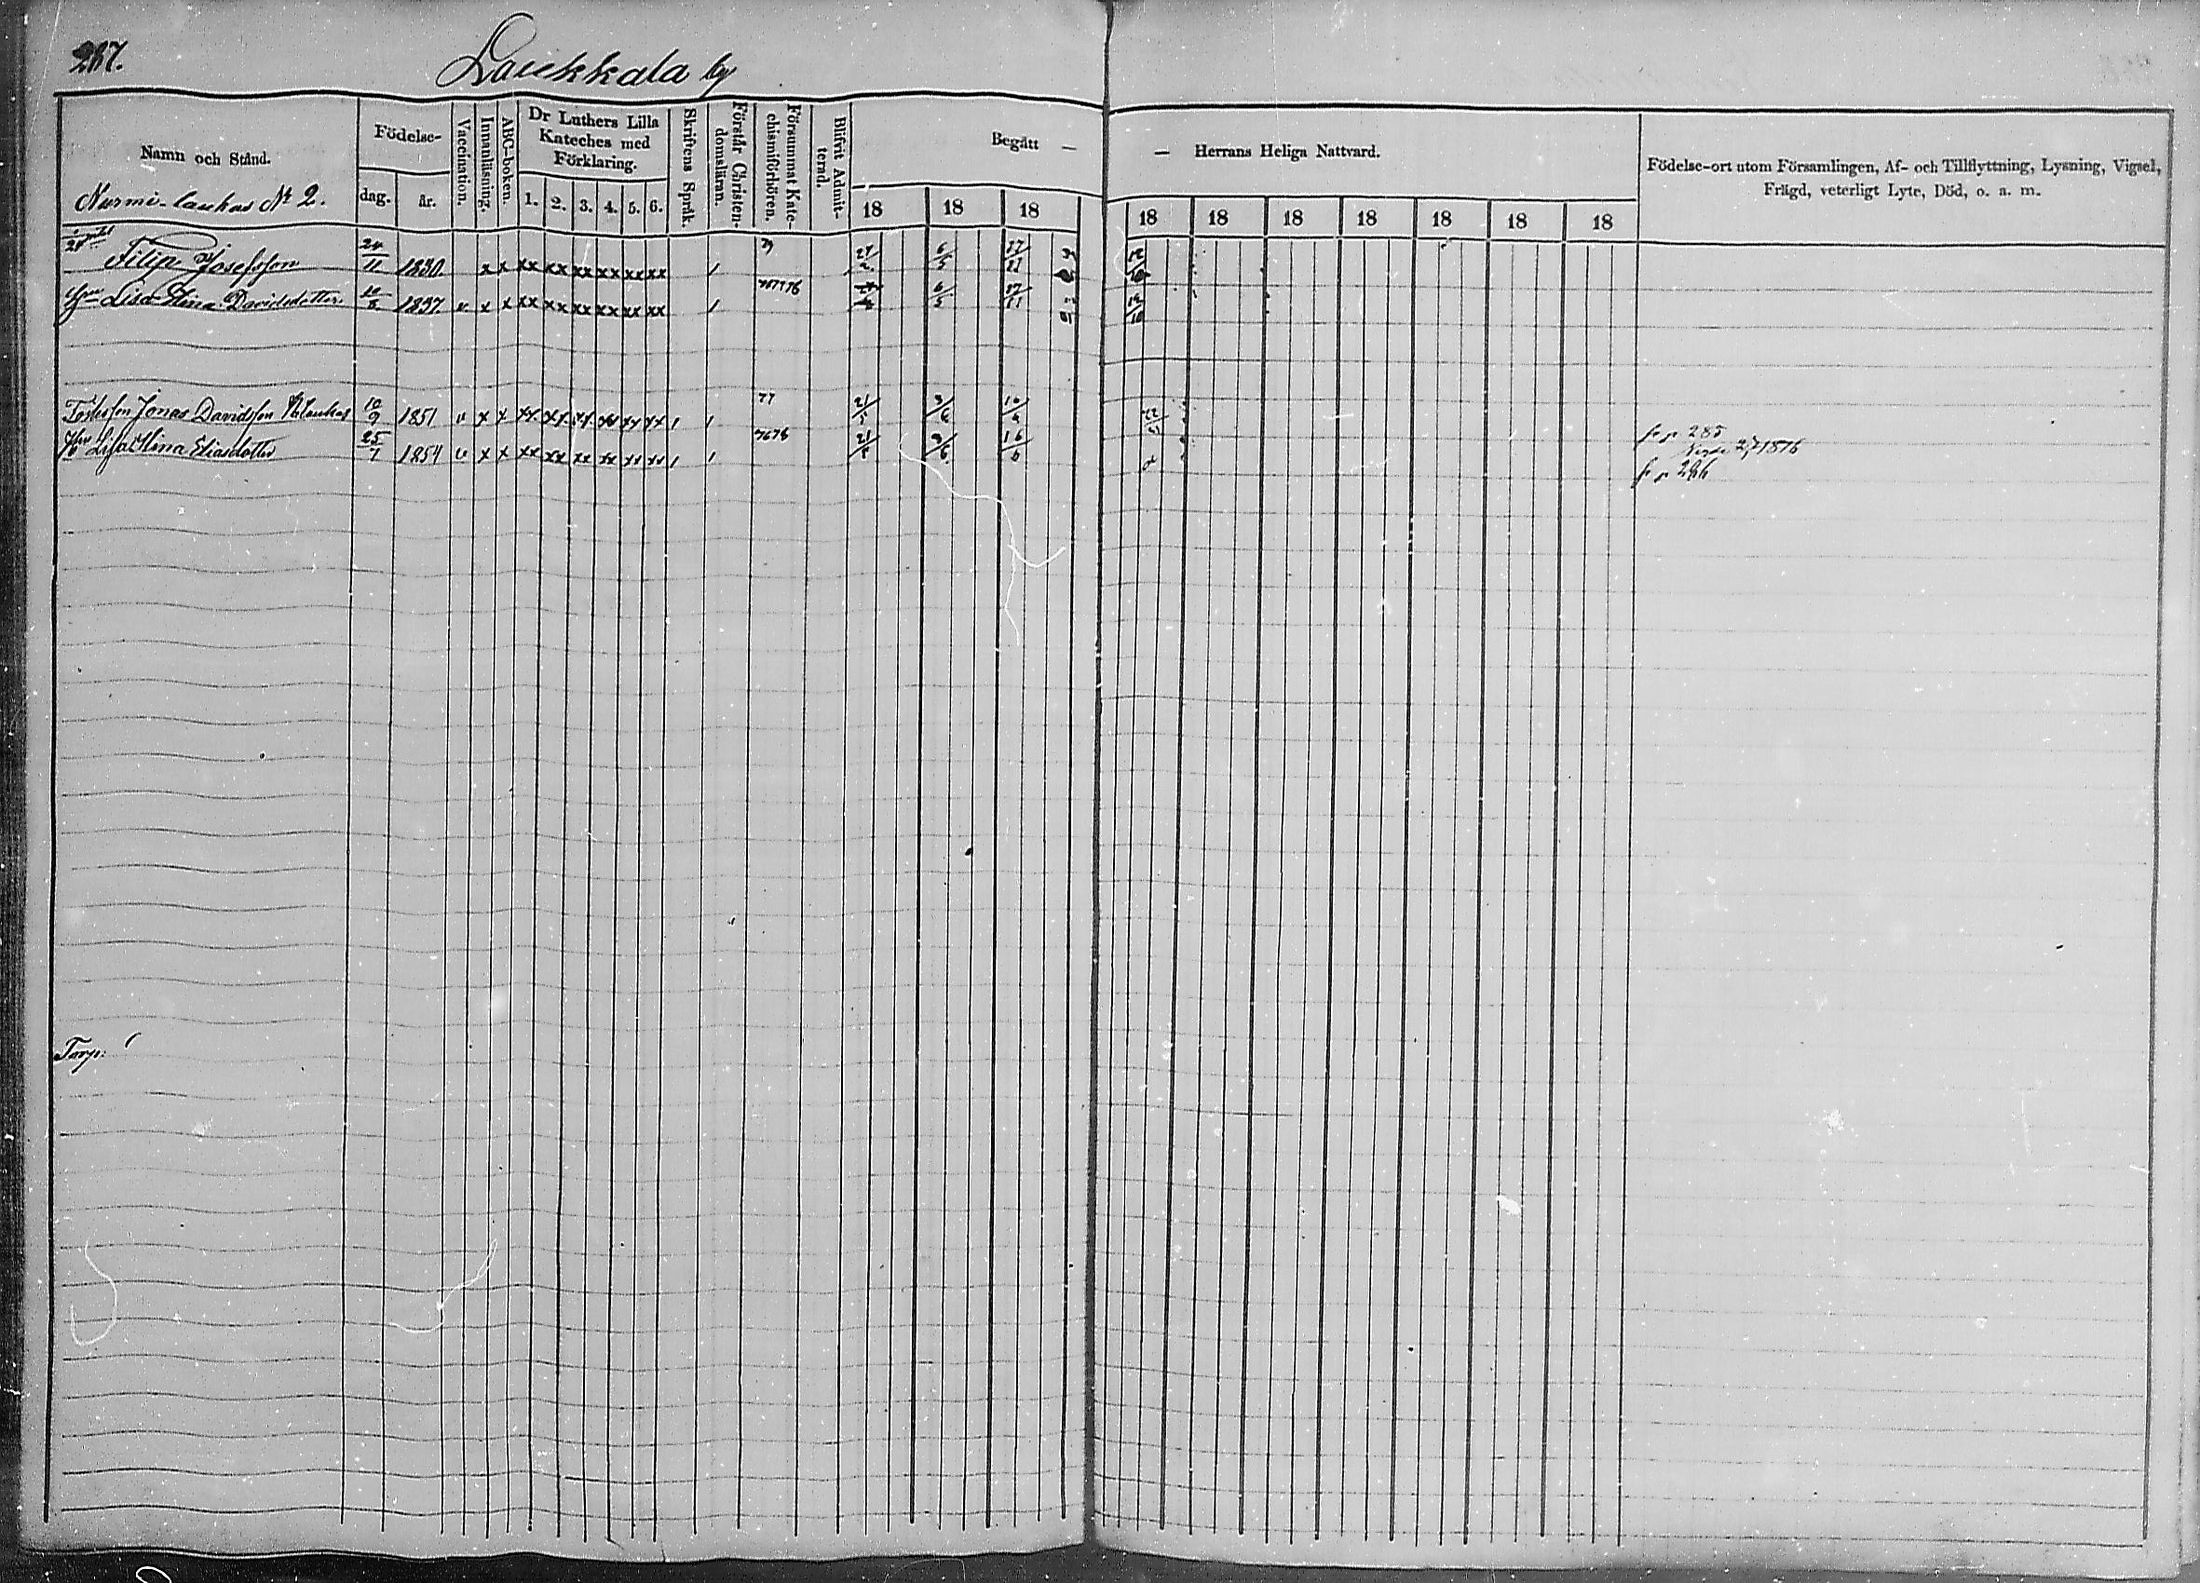 287.
Laukkala by
Namn och Stånd.
Födelse-
dag.
år.
Vaccination.
Innanläsning.
ABC-boken.
Dr Luthers Lilla
Kateches med
Förklaring.
1. 2. 3. 4. 5. 6.
Skriftens Språk.
Förstår Christen-
domsläran.
Försummat Kate-
chismiförhören.
Blifvit Admit-
terad.
Begått —
— Herrans Heliga Nattvard.
18 18 18 18 18 18 18 18 18 18
Födelse-ort utom Församlingen, Af- och Tillflyttning, Lysning, Vigsel,
Frägd, veterligt Lyte, Död, o. a. m.
Nurmi-laukas № 2.
Filip Josefsson 24/11 1830. x x xx xx xx xx xx xx / 6/5 27/11
Lisa Stina Davidsdotter 10/8 1837. v x x xx xx xx xx xx xx / 6/5 27/11
Jonas Davidsson 10/9 1851 v x x xx xx xx xx xx xx / / 77
fr p 285
Lisa Stina Eliasdotter 25/7 1854 v x x xx xx xx xx xx xx / / 7678
1876
fr p 286
Torp: